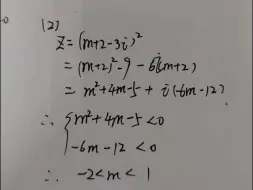 (2)
z=(m+2-3i)²
=(m+2)²-9-6i(m+2)
=m²+4m-5+i(-6m-12)
∴ { m²+4m-5<0
-6m-12<0
∴ -2<m<1